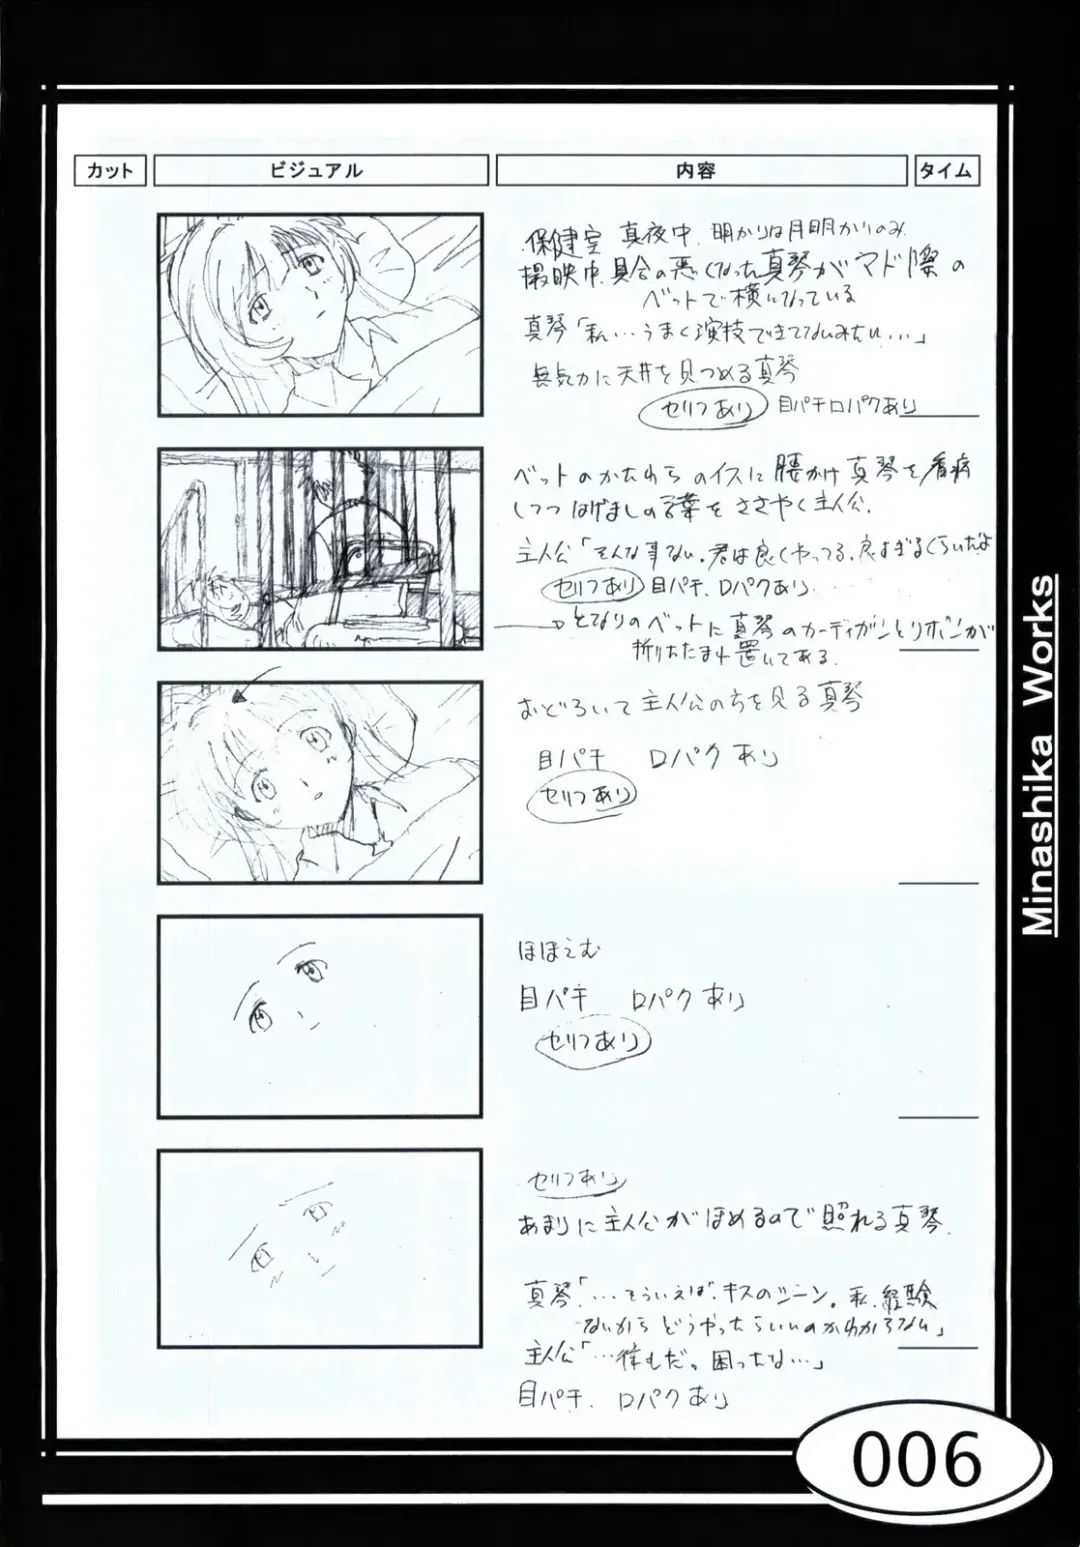 カット
ビジュアル
内容
タイム
保健室 真夜中 明かりは月明かりのみ
撮映中、具合の悪くなった真琴がマド際の
ベットで横になっている
真琴「私…うまく演技できてないみたい…」
無気力に天井を見つめる真琴
セリフあり 目パチ口パクあり
ベットのかたわらのイスに腰かけ真琴を看病
しつつはげましの言葉をささやく主人公.
主人公「そんな事ない。君は良くやってる、良すぎるくらいだよ
セリフあり 目パチ、口パクあり
→となりのベットに真琴のカーディガンとリボンが
折りたたまれ置いてある.
おどろいて主人公の方を見る真琴
目パチ 口パクあり
セリフあり
ほほえむ
目パチ 口パクあり
セリフあり
セリフあり
あまりに主人公がほめるので照れる真琴.
真琴「…そういえば、キスのシーン。私、経験
ないからどうやったらいいのかわからない」
主人公「…僕もだ。困ったな…」
目パチ、口パクあり
Minashika Works
006